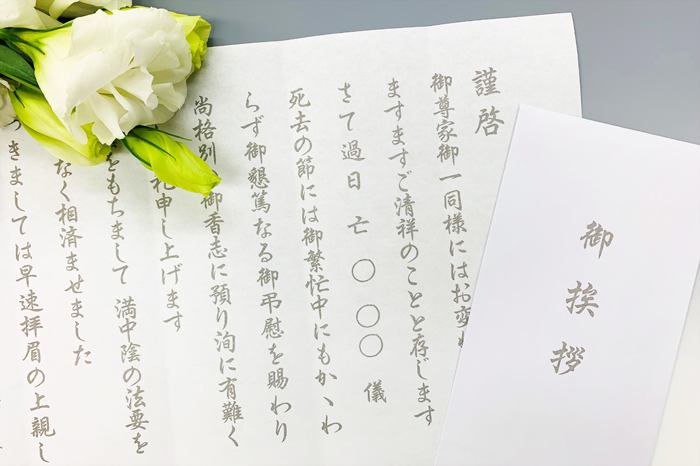 謹啓
御尊家御一同様にはお変わ
ますますご清祥のことと存じます
さて過日 亡 〇 〇〇 儀
死去の節には御繁忙中にもかゝわ
らず御懇篤なる御弔慰を賜わり
尚格別 御香志に預り洵に有難く
礼申し上げます
をもちまして 満中陰の法要を
なく相済ませました
つきましては早速拝眉の上親し
御挨拶